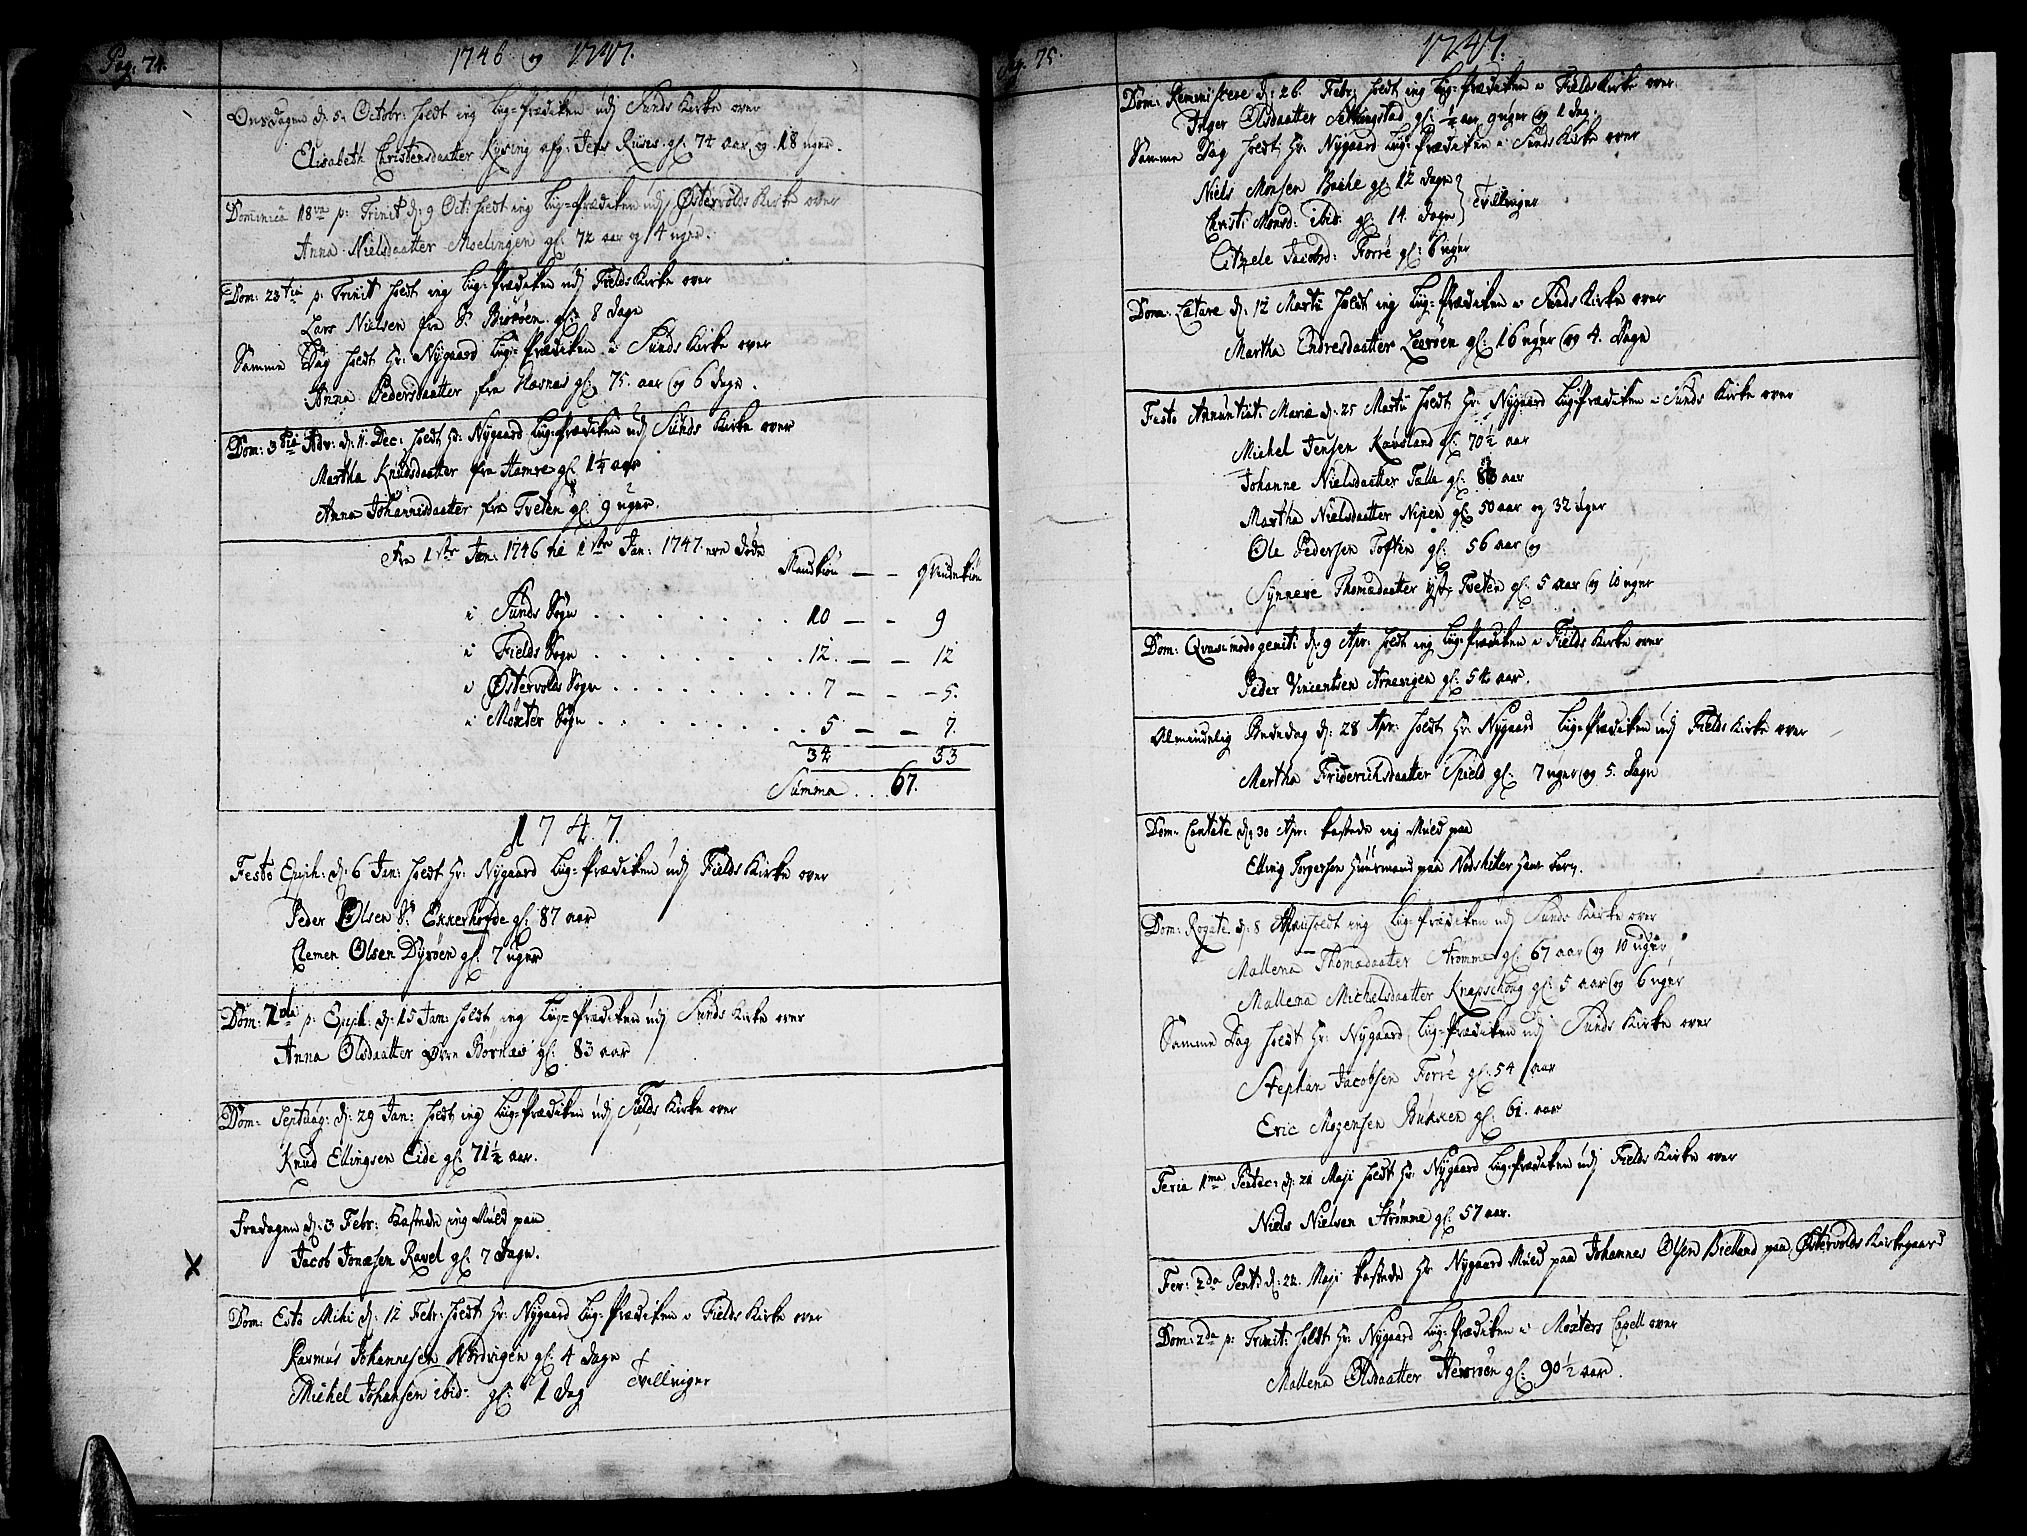 Pag. 74.
1746 og 1747.
Onsdagen d. 5. Octobr: holdt ieg Liig-Prædiken udj Sunds Kirke over
Elisabeth Christensdaatter Kysing afg: Jens Ruses gl. 74 aar og 18 uger.
Dominica 18va p: Trinit d. 9 Oct: holdt ieg Liig-Prædiken udj Østervolds Kirke over
Anna Nielsdaatter Moelingen gl: 72 aar og 4 uger.
Dom: 23tia p: Trinit holdt ieg Liig-Prædiken udj Fields Kirke over
Lars Nielsen fra S. Biøröen gl: 8 Dage
Samme Dag holdt Hr: Nygaard Liig-Prædiken i Sunds Kirke over
Anna Pedersdaatter fra Høsnes gl: 75. aar og 6 Dage.
Dom: 3tia Adv: d: 11. Dec: holdt Hr: Nygaard Liig-Prædiken udj Sunds Kirke over
Martha Knudsdaatter fra Hamre gl. 1½ aar
Anna Johannisdaatter fra Tveten gl. 9 uger.
Fra 1ste Jan: 1746 til 1ste Jan: 1747. ere Døde
Mandkiön — - Qvindekiön
i Sunds Sogn . . . . . . . 10 — - 9
i Fields Sogn . . . . . . . 12. — - 12
i Østervolds Sogn . . . . . . . 7 — - - 5.
i Møxter Sogn . . . . . . . 5 — - 7.
34 33
Summa . . 67.
1747.
Festo Epiph: d. 6 Jan: holdt Hr: Nygaard Liig-Prædiken udj Fields Kirke over
Peder Olsen S. Ekkerhofde gl: 87 aar
Clemen Olsen Dyröen gl. 7 uger
Dom: 1ma p: Epiph: d. 15 Jan: holdt ieg Liig-Prædiken udj Sunds Kirke over
Anna Olsdaatter øvre Bornæs gl: 83 aar
Dom: Septuag: d: 29 Jan: holdt ieg Liig-Prædiken udj Fields Kirke over
Knud Ellingsen Eide gl. 71½ aar.
Fredagen d: 3 Febr: Kastede ieg Muld paa
Jacob Jonæsen Ravel gl. 7 Dage.
X
Dom: Esto Mihi d: 12 Febr: holdt Hr: Nygaard Liig-Prædiken i Fields Kirke over
Rasmus Johannesen Nordvigen gl. 4 Dage
Michel Johansen ibid: gl: 1 Dag
Tvillinger
Pag. 75
1747.
Dom: Reminiscere d: 26. Febr: holdt ieg Liig-Prædiken i Fields Kirke over
Inger Olsdaatter gl. ½ aar 9 uger og 1 Dag.
Samme Dag holdt Hr: Nygaard Liig-Prædiken i Sunds Kirke over
Niels Monsen Bache gl. 12 Dage
Christi Monsd: ibid: gl: 14. Dage
Tvillinger
Citzele Jacobd: Forre gl: 6 uger
Dom: Lætare d. 12 Martii holdt ieg Liig-Prædiken i Sunds Kirke over
Martha Endresdaatter Leeröen gl. 16 uger og 4. Dage
Festo Annuntiat: Mariæ d: 25 Martii holdt Hr: Nygaard Liig-Prædiken i Sunds Kirke over
Michel Jensen Kausland gl: 70½ aar
Johanne Nielsdaatter Tælle gl: 83 aar
Martha Nielsdaatter Nipen gl. 50 aar og 32 Uger
Ole Pedersen Toften gl: 56 aar og
Synneve Thomædaatter yst: Tveten gl. 5 aar og 10 uger
Dom: Qvasimodogeniti d. 9 Apr: holdt ieg Liig-Prædiken i Fields Kirke over
Peder Vincentsen Arnevigen gl: 54 aar.
Almindelig Bededag d: 28 Apr: holdt Hr: Nygaard Liig-Prædiken udj Fields Kirke over
Martha Friderichsdaatter Spield gl: 7 uger og 5. Dage
Dom: Cantate d: 30 Apr: kastede ieg Muld paa
Elling Torgersen Huusmand paa Nodskitter hans barn.
Dom: Rogate d. 8 holdt ieg Liig-Prædiken udj Sunds Kirke over
Mallena Thomædaatter Strømme gl: 67 aar og 10 uger
Mallena Michelsdaatter Knapschoug gl: 5 aar og 6 uger
Samme Dag holdt Hr: Nygaard Liig-Prædiken udj Sunds Kirke over
Stephan Jacobsen Forre gl. 54 aar
Eric Mogensen Bukken gl. 61. aar
Feria 1ma Pentec: d: 21 Maji holdt Hr: Nygaard Liig-Prædiken udj Fields Kirke over
Niels Nielsen Strømme gl. 57 aar.
Fer: 2da Pent: d: 22. Maji kastede Hr Nygaard Muld paa Johannes Olsen Bielland paa Østervolds Kirkegaard
Dom: 2da p: Trinit: holdt Hr: Nygaard Liig-Prædiken i Møxters Capell over
Mallena Olsdaatter Hevröen gl: 90½ aar.